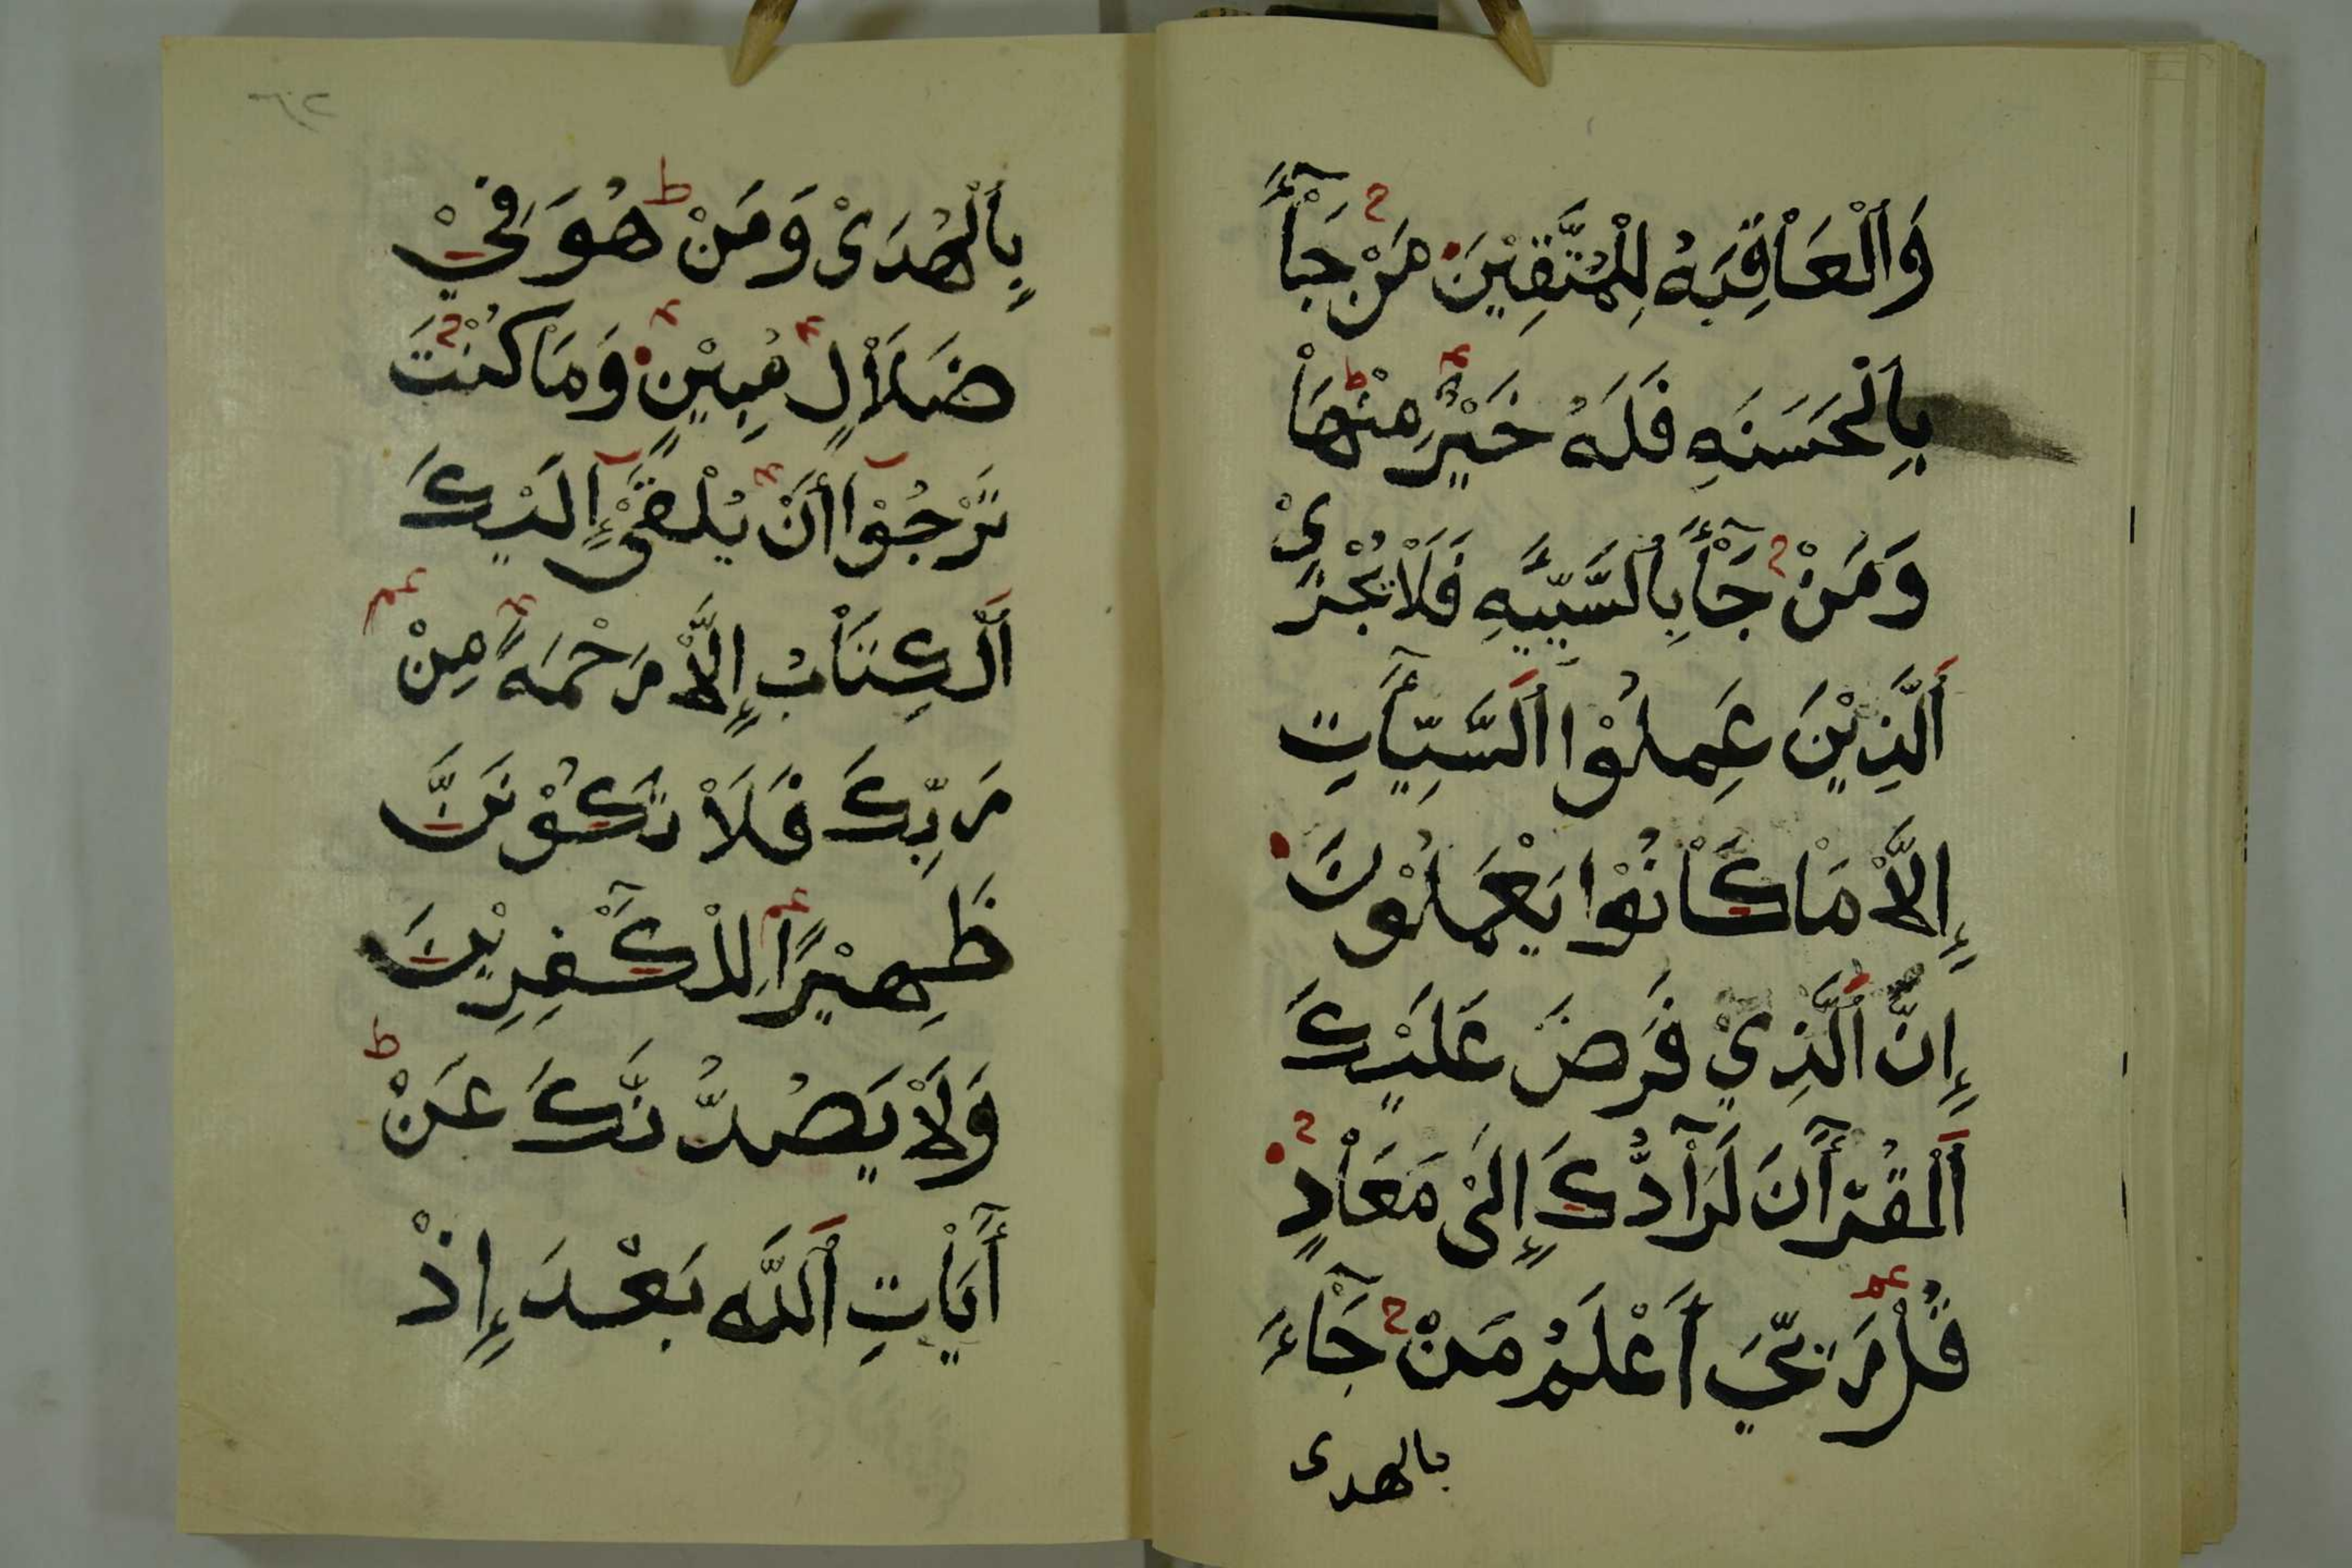 وَالْعَاْقِبَهُ لِلْمُتَّقِيْنَ مَنْ جَآءَ
بِالْحَسَنَهِ فَلَهُ خَيْرٌ مِنْهَاْ
وَمَنْ جَآءَ بِالسَّيِّيَهِ فَلَاْ يُجْزَىْ
اَلَّذِيْنَ عَمِلُوْا اَلسَّيِّأٰتِ
إِلَّاْ مَاْ كَاْنُوْا يَعْمَلُوْنَ
إِنَّ اَلَّذِيْ فَرَضَ عَلَيْكَ
اَلْقُرْأٰنَ لَرَآدُّكَ إِلَىْ مَعَاْدٍ
قُلْ رَبِّيَ أَعْلَمُ مَنْ جَآءَ
بالهدى
بِاَلْهُدَىْ وَمَنْ هُوَ فِيْ
ضَلَاْلٍ مُبِيْنٍ وَمَاْ كُنْتَ
تَرْجُوْآ أَنْ يُلْقَىْٓ إِلَيْكَ
اَلْكِتَاْبُ إِلَّاْ رَحْمَهً مِنْ
رَبِّكَ فَلَاْ تَكُوْنَنَّ
ظَهِيْرًا لِلْكٰفِرِيْنَ
وَلَاْ يَصُدُّنَّكَ عَنْ
أٰيَاْتِ اَللَّه بَعْدَ إِذْ